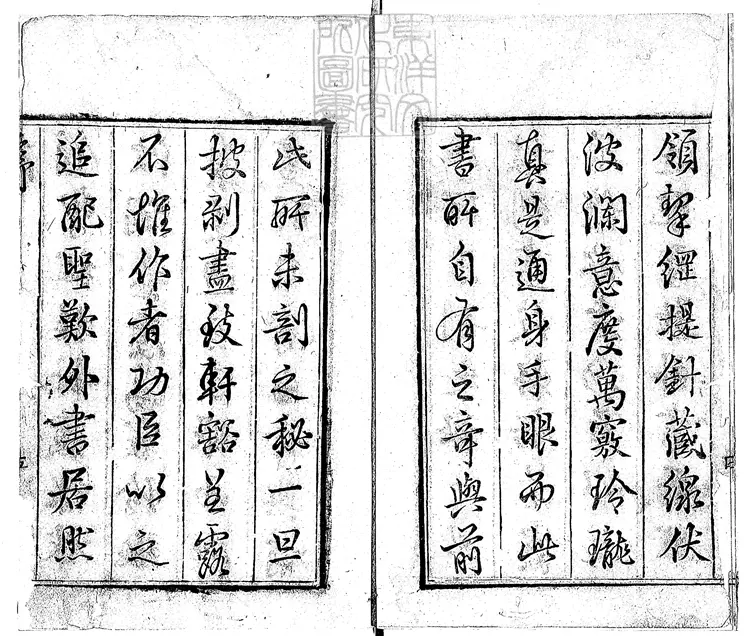 東洋文
化研究
所圖書
領挈綱提針藏線伏
波瀾意度萬竅玲瓏
真是通身手眼而此
書所自有之奇與前
此所未剖之秘一旦
披剝盡致軒豁呈露
不惟作者功臣以之
追配聖歎外書居然